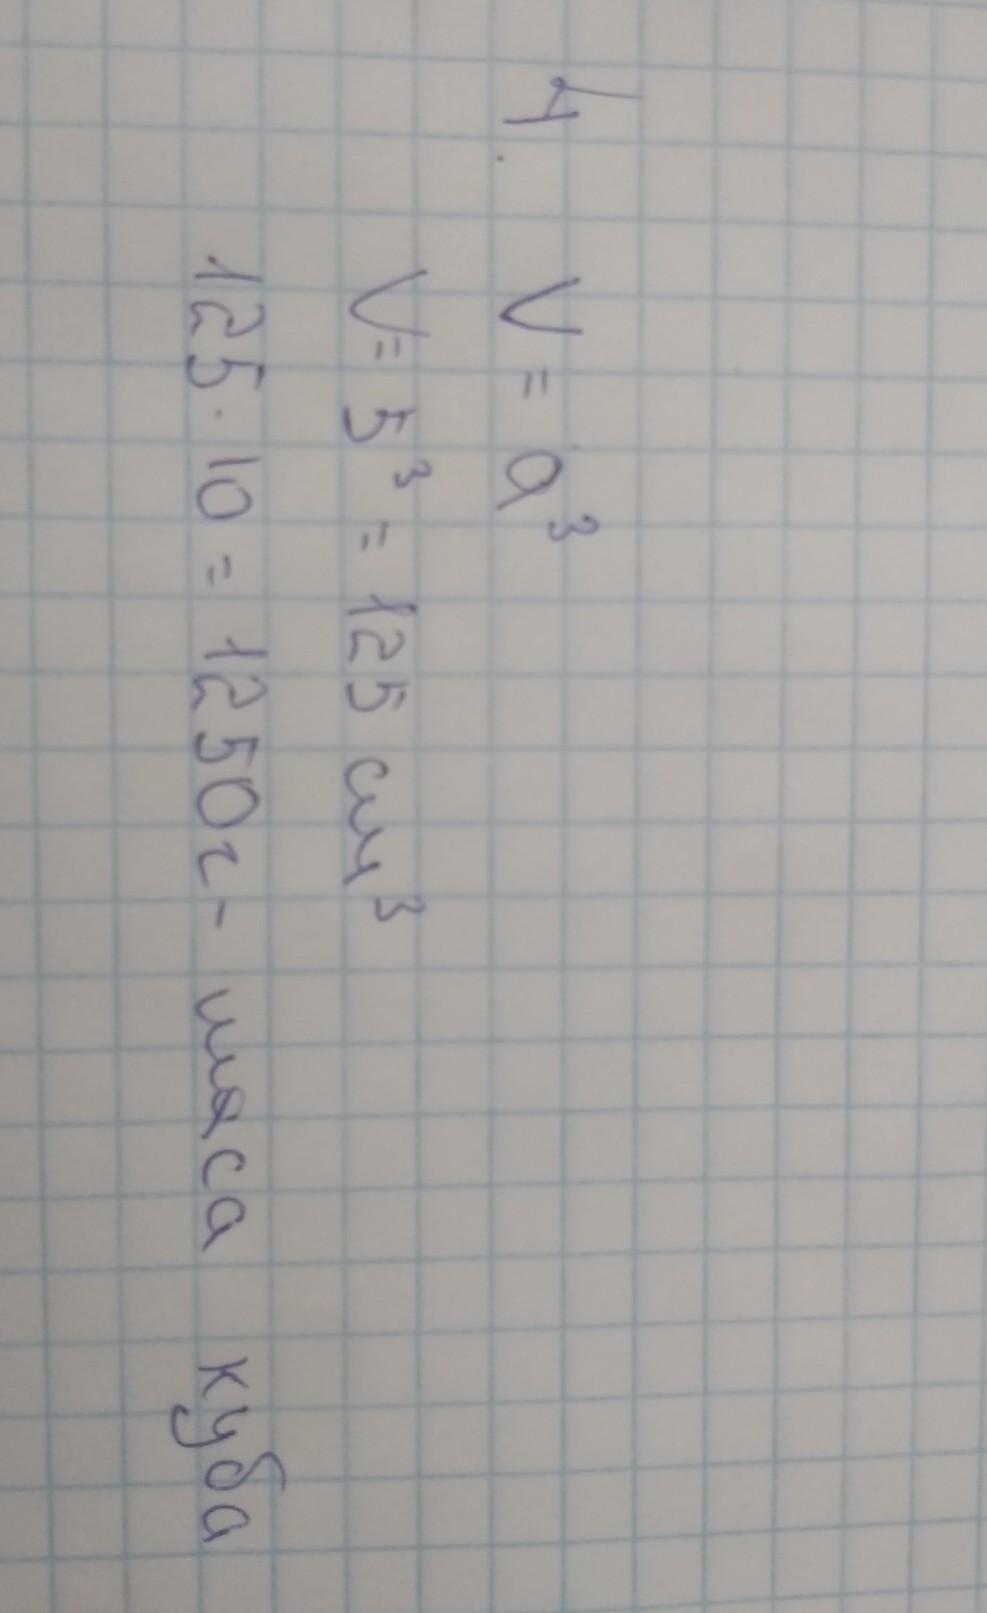 4. V = a³
V = 5³ = 125 см³
125 · 10 = 1250г - маса куба